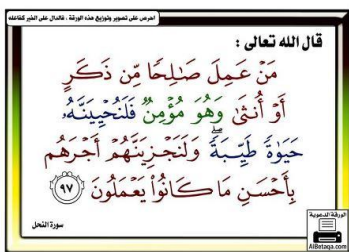 احرص على تصوير وتوزيع هذه الورقة ، فالدال على الخير كفاعله
قال الله تعالى :
مَنْ عَمِلَ صَٰلِحًا مِّن ذَكَرٍ
أَوْ أُنثَىٰ وَهُوَ مُؤْمِنٌ فَلَنُحْيِيَنَّهُۥ
حَيَوٰةً طَيِّبَةً ۖ وَلَنَجْزِيَنَّهُمْ أَجْرَهُم
بِأَحْسَنِ مَا كَانُوا۟ يَعْمَلُونَ ٩٧
سورة النحل
الورقة الدعوية
AlBetaqa.com